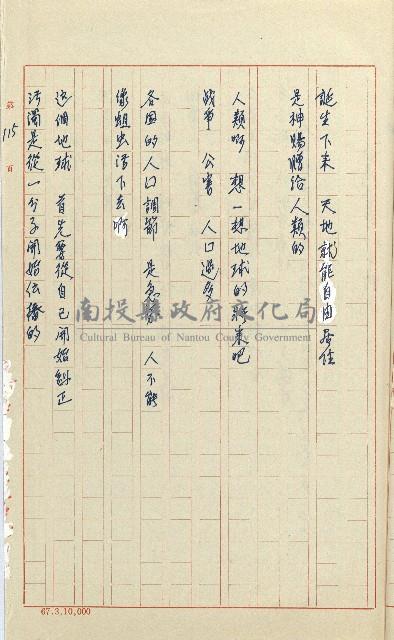 誕生下來 天地就能自由居住
是神賜贈給人類的
人類啊 想一想地球的將來吧
戰爭 公害 人口過多
各国的人口調節 是急務 人不能
像蛆虫活下去啊
這個地球 首先要從自己開始糾正
汚濁是從一分子開始伝播的
第 115 頁
南投縣政府文化局
Cultural Bureau of Nantou County Government
67.3.10,000